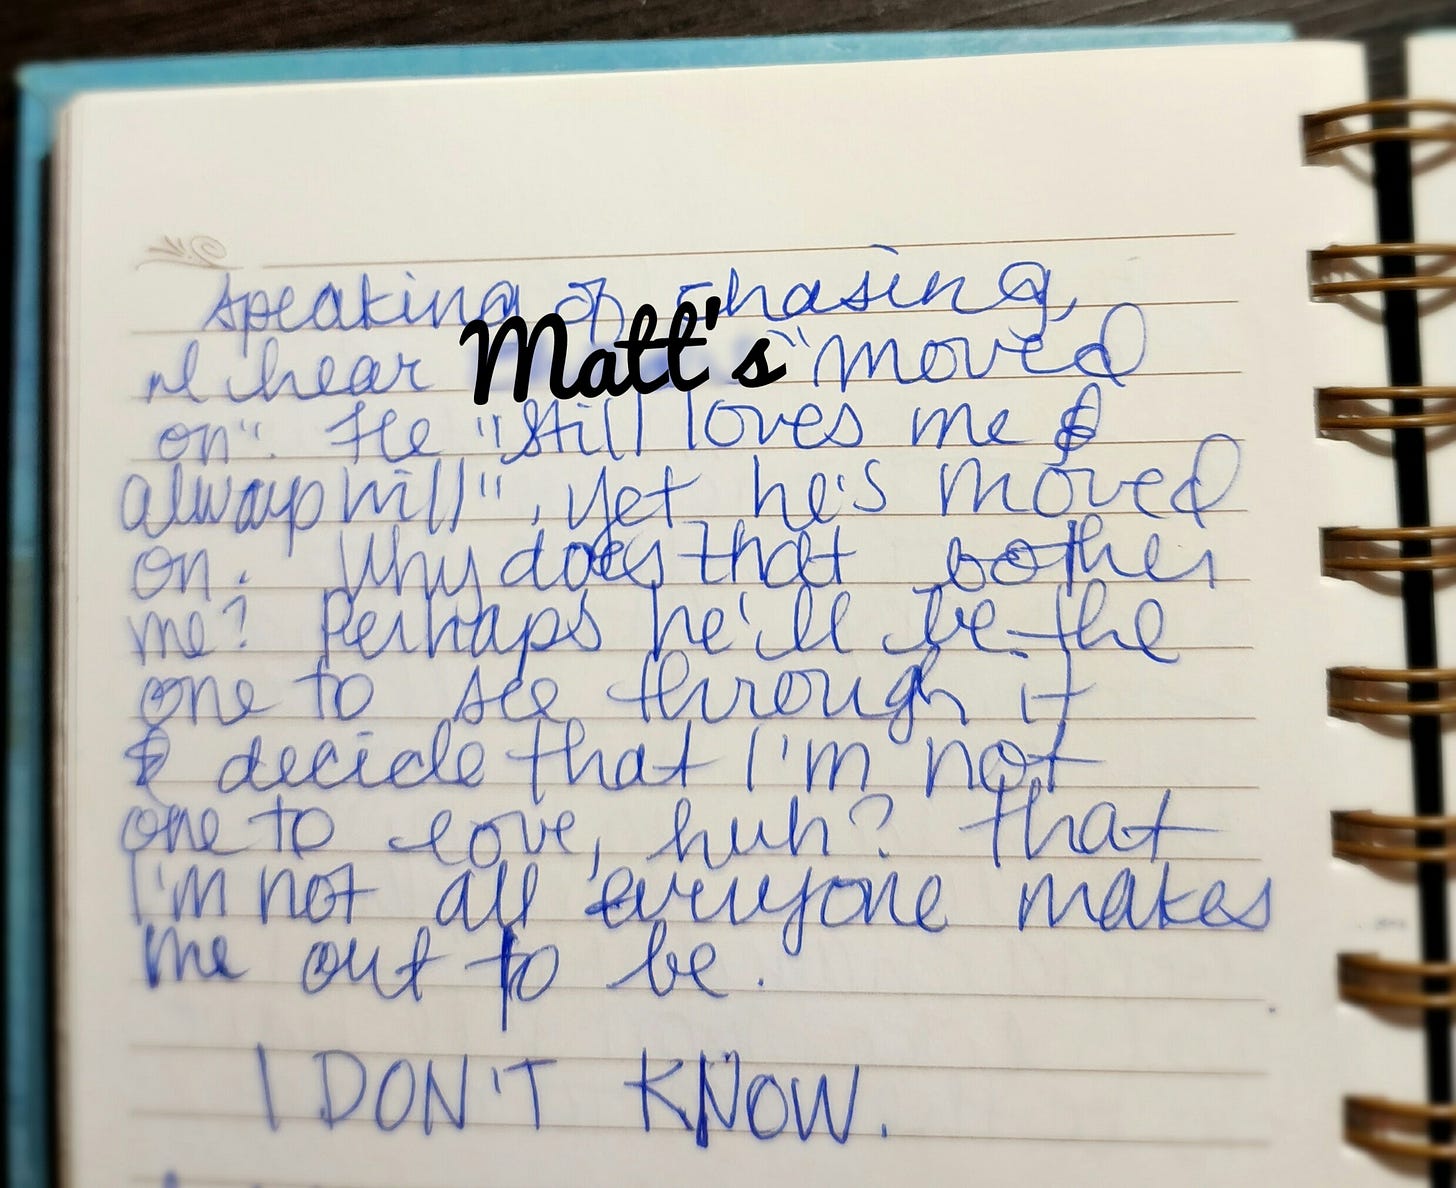 Speaking of chasing,
I hear Matt's "moved
on". He "still loves me &
always will", yet he's moved
on. Why does that bother
me? Perhaps he'll be the
one to see through it
& decide that I'm not
one to love, huh? That
I'm not all everyone makes
me out to be.
I DON'T KNOW.